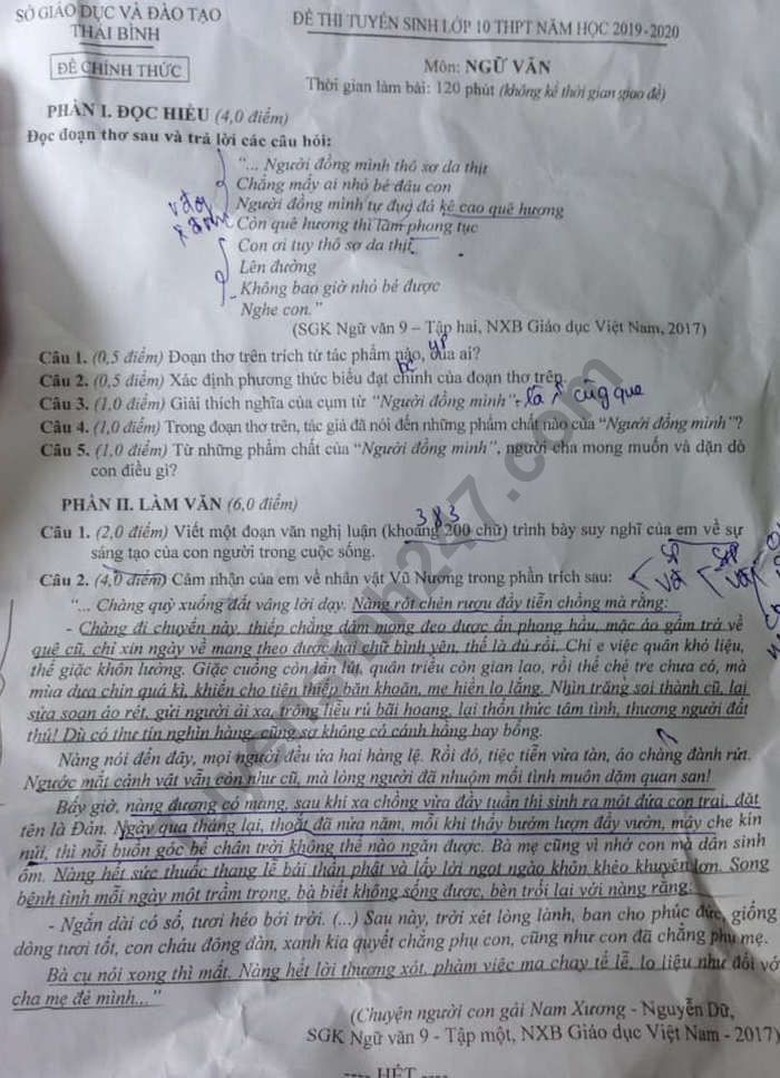 SỞ GIÁO DỤC VÀ ĐÀO TẠO
THÁI BÌNH
ĐỀ CHÍNH THỨC
ĐỀ THI TUYỂN SINH LỚP 10 THPT NĂM HỌC 2019-2020
Môn: NGỮ VĂN
Thời gian làm bài: 120 phút (không kể thời gian giao đề)
PHẦN I. ĐỌC HIỂU (4,0 điểm)
Đọc đoạn thơ sau và trả lời các câu hỏi:
"... Người đồng mình thô sơ da thịt
Chẳng mấy ai nhỏ bé đâu con
Người đồng mình tự đục đá kê cao quê hương
Còn quê hương thì làm phong tục
Con ơi tuy thô sơ da thịt
Lên đường
Không bao giờ nhỏ bé được
Nghe con."
(SGK Ngữ văn 9 – Tập hai, NXB Giáo dục Việt Nam, 2017)
Câu 1. (0,5 điểm) Đoạn thơ trên trích từ tác phẩm nào, của ai?
Câu 2. (0,5 điểm) Xác định phương thức biểu đạt chính của đoạn thơ trên.
Câu 3. (1,0 điểm) Giải thích nghĩa của cụm từ "Người đồng mình".
Câu 4. (1,0 điểm) Trong đoạn thơ trên, tác giả đã nói đến những phẩm chất nào của "Người đồng mình"?
Câu 5. (1,0 điểm) Từ những phẩm chất của "Người đồng mình", người cha mong muốn và dặn dò
con điều gì?
PHẦN II. LÀM VĂN (6,0 điểm)
383
Câu 1. (2,0 điểm) Viết một đoạn văn nghị luận (khoảng 200 chữ) trình bày suy nghĩ của em về sự
sáng tạo của con người trong cuộc sống.
Câu 2. (4,0 điểm) Cảm nhận của em về nhân vật Vũ Nương trong phần trích sau:
"... Chàng quỳ xuống đất vâng lời dạy. Nàng rót chén rượu đầy tiễn chồng mà rằng:
- Chàng đi chuyến này, thiếp chẳng dám mong đeo được ấn phong hầu, mặc áo gấm trở về
quê cũ, chỉ xin ngày về mang theo được hai chữ bình yên, thế là đủ rồi. Chỉ e việc quân khó liệu,
thế giặc khôn lường. Giặc cuồng còn lẩn lút, quân triều còn gian lao, rồi thế chẻ tre chưa có, mà
mùa dưa chín quá kì, khiến cho tiện thiếp băn khoăn, mẹ hiền lo lắng. Nhìn trăng soi thành cũ, lại
sửa soạn áo rét, gửi người ải xa, trông liễu rủ bãi hoang, lại thổn thức tâm tình, thương người đất
thú! Dù có thư tín nghìn hàng, cũng sợ không có cánh hồng bay bổng.
Nàng nói đến đây, mọi người đều ứa hai hàng lệ. Rồi đó, tiệc tiễn vừa tàn, áo chàng đành rứt.
Ngước mắt cảnh vật vẫn còn như cũ, mà lòng người đã nhuộm mối tình muôn dặm quan san!
Bấy giờ, nàng đương có mang, sau khi xa chồng vừa đầy tuần thì sinh ra một đứa con trai, đặt
tên là Đản. Ngày qua tháng lại, thoắt đã nửa năm, mỗi khi thấy bướm lượn đầy vườn, mây che kín
núi, thì nỗi buồn góc bể chân trời không thể nào ngăn được. Bà mẹ cũng vì nhớ con mà dần sinh
ốm. Nàng hết sức thuốc thang lễ bái thần phật và lấy lời ngọt ngào khôn khéo khuyên lơn. Song
bệnh tình mỗi ngày một trầm trọng, bà biết không sống được, bèn trối lại với nàng rằng:
- Ngắn dài có số, tươi héo bởi trời. (...) Sau này, trời xét lòng lành, ban cho phúc đức, giống
dòng tươi tốt, con cháu đông đàn, xanh kia quyết chẳng phụ con, cũng như con đã chẳng phụ mẹ.
Bà cụ nói xong thì mất. Nàng hết lời thương xót, phàm việc ma chay tế lễ, lo liệu như đối với
cha mẹ đẻ mình..."
(Chuyện người con gái Nam Xương - Nguyễn Dữ,
SGK Ngữ văn 9 - Tập một, NXB Giáo dục Việt Nam - 2017)
---- HẾT ----
tuyensinh247.com